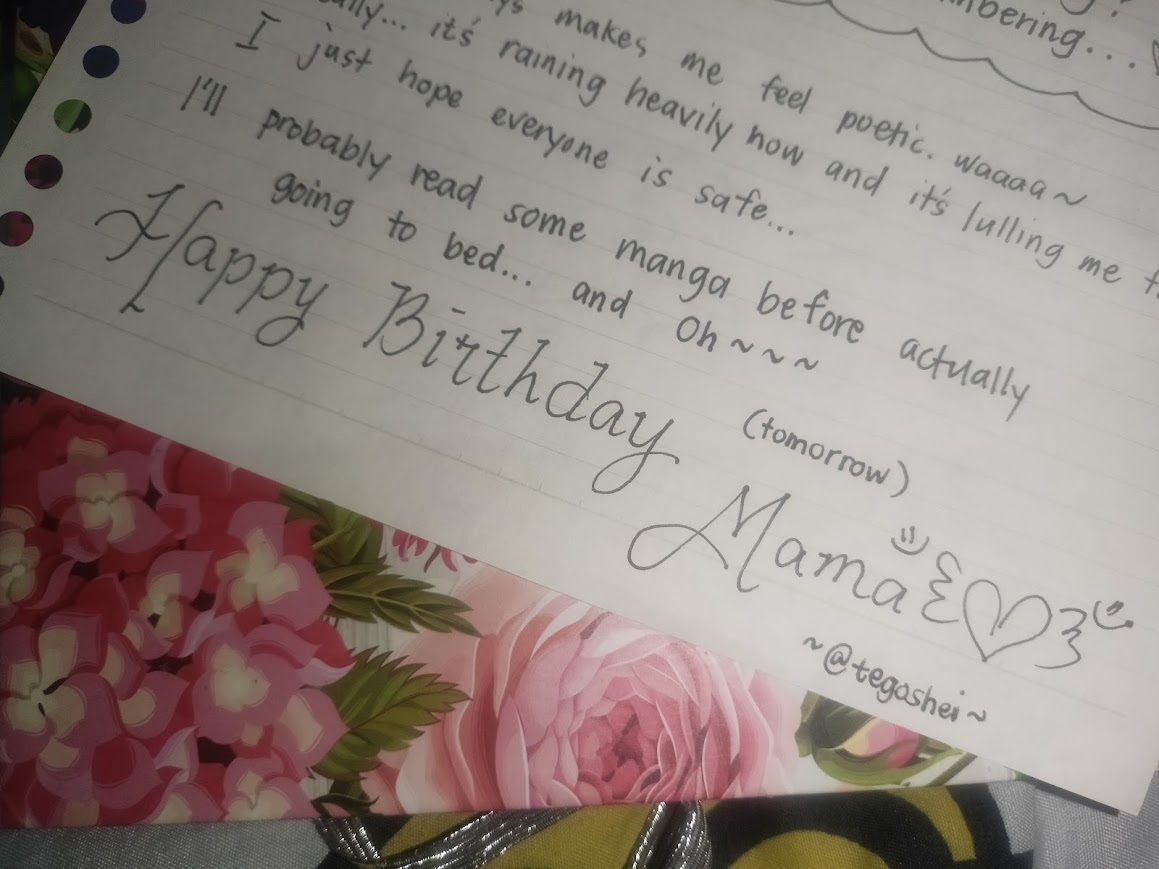 mbering...
makes me feel poetic. waaaa~
it's raining heavily now and it's lulling me
I just hope everyone is safe...
I'll probably read some manga before actually
going to bed... and Oh~~~
Happy Birthday (tomorrow)
Mama
~@tegoshei~